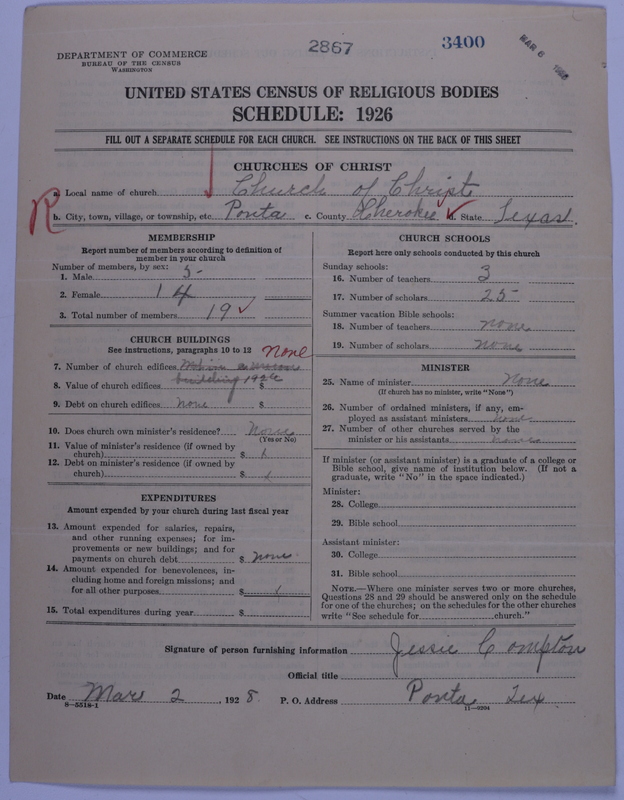 2867
3400
MAR 6
DEPARTMENT OF COMMERCE
BUREAU OF THE CENSUS
WASHINGTON
UNITED STATES CENSUS OF RELIGIOUS BODIES
SCHEDULE: 1926
FILL OUT A SEPARATE SCHEDULE FOR EACH CHURCH. SEE INSTRUCTIONS ON THE BACK OF THIS SHEET
CHURCHES OF CHRIST
a. Local name of church Church of Christ
R b. City, town, village, or township, etc. Ponta c. County Cherokee d. State Texas
MEMBERSHIP
Report number of members according to definition of
member in your church
Number of members, by sex:
1. Male 5
2. Female 14
3. Total number of members 19
CHURCH BUILDINGS
See instructions, paragraphs 10 to 12 none
7. Number of church edifices
8. Value of church edifices building 1926 $
9. Debt on church edifices none $
10. Does church own minister's residence? None
(Yes or No)
11. Value of minister's residence (if owned by
church) $
12. Debt on minister's residence (if owned by
church) $
EXPENDITURES
Amount expended by your church during last fiscal year
13. Amount expended for salaries, repairs,
and other running expenses; for im-
provements or new buildings; and for
payments on church debt $ none
14. Amount expended for benevolences, in-
cluding home and foreign missions; and
for all other purposes $
15. Total expenditures during year $
CHURCH SCHOOLS
Report here only schools conducted by this church
Sunday schools:
16. Number of teachers 3
17. Number of scholars 25
Summer vacation Bible schools:
18. Number of teachers none
19. Number of scholars none
MINISTER
25. Name of minister None
(If church has no minister, write "None")
26. Number of ordained ministers, if any, em-
ployed as assistant ministers none
27. Number of other churches served by the
minister or his assistants none
If minister (or assistant minister) is a graduate of a college or
Bible school, give name of institution below. (If not a
graduate, write "No" in the space indicated.)
Minister:
28. College
29. Bible school
Assistant minister:
30. College
31. Bible school
NOTE.—Where one minister serves two or more churches,
Questions 28 and 29 should be answered only on the schedule
for one of the churches; on the schedules for the other churches
write "See schedule for church."
Signature of person furnishing information Jessie Compton
Official title
Date Mar 2, 1928 P. O. Address Ponta Tex
8—5518-1 11—9394